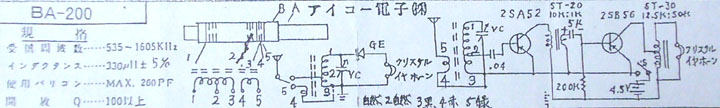 BA-200
規格
受信周波数……535~1605KHz
インダクタンス……330μH±5%
使用バリコン……MAX. 200PF
開放 Q……100以上
BA アイコー電子(株)
1 2 3 4 5
1 2 3 4 5
5 4 1 2 VC GE
クリスタル
イヤホーン
5 4 1 2 VC
.04
2SA52
ST-20
10K:1K
5K
2SB56
ST-30
12.5K:50K
200K
4.5V
クリスタル
イヤホーン
3黒 4赤 5緑